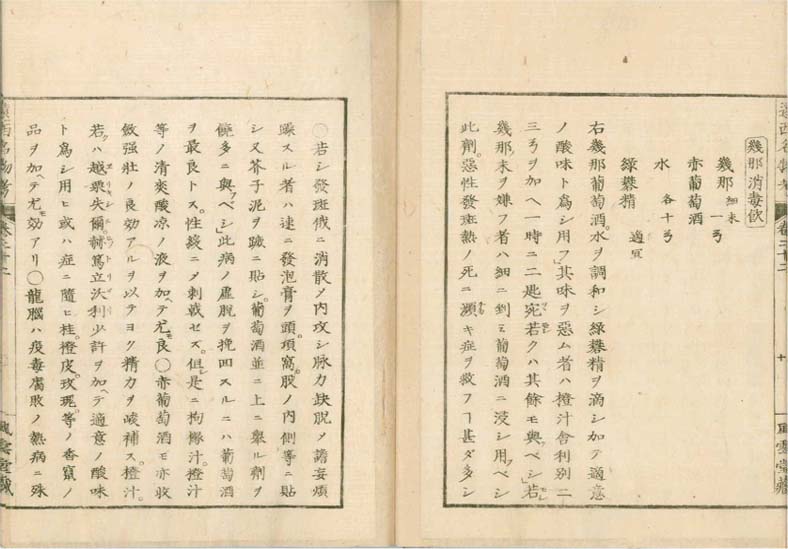 幾那消毒飲
幾那 細末 一弓
赤葡萄酒
水 各十弓
緑礬精 適宜
右幾那葡萄酒。水ヲ調和シ緑礬精ヲ滴シ加テ適意
ノ酸味ト為シ用フ」其味ヲ惡ム者ハ橙汁舎利別二
三弓ヲ加ヘ一時ニ二匙宛若クハ其餘モ與ベシ」若
幾那末ヲ嫌フ者ハ細ニ剉ミ葡萄酒ニ浸シ用ベシ
此劑。惡性發斑熱ノ死ニ瀕キ症ヲ救フヿ甚ダ多シ
○若シ發斑俄ニ消散メ内攻シ脉力缺脱メ譫妄煩
躁スル者ハ速ニ發泡膏ヲ頭。項窩。股ノ内側等ニ貼
シ又芥子泥ヲ蹠ニ貼シ。葡萄酒並ニ上ニ舉ル劑ヲ
饒多ニ與ベシ」此病ノ虚脱ヲ挽回スルニハ葡萄酒
ヲ最良トス。性緩ニメ刺戟セズ。但是ニ枸櫞汁。橙汁
等ノ清爽酸凉ノ液ヲ加ヘテ尤モ良○赤葡萄酒モ亦收
斂強壮ノ良効アルヲ以テヨク精力ヲ峻補ス。橙汁。
若クハ越列失爾。赫篤立沃利少許ヲ加ヘテ適意ノ酸味
ト為シ用ヒ或ハ症ニ隨ヒ桂。橙皮。玫瑰。等ノ香竄ノ
品ヲ加ヘテ尤モ効アリ○龍腦ハ疫毒腐敗ノ熱病ニ殊
遠西名物考
卷三十二
十
風雲堂藏